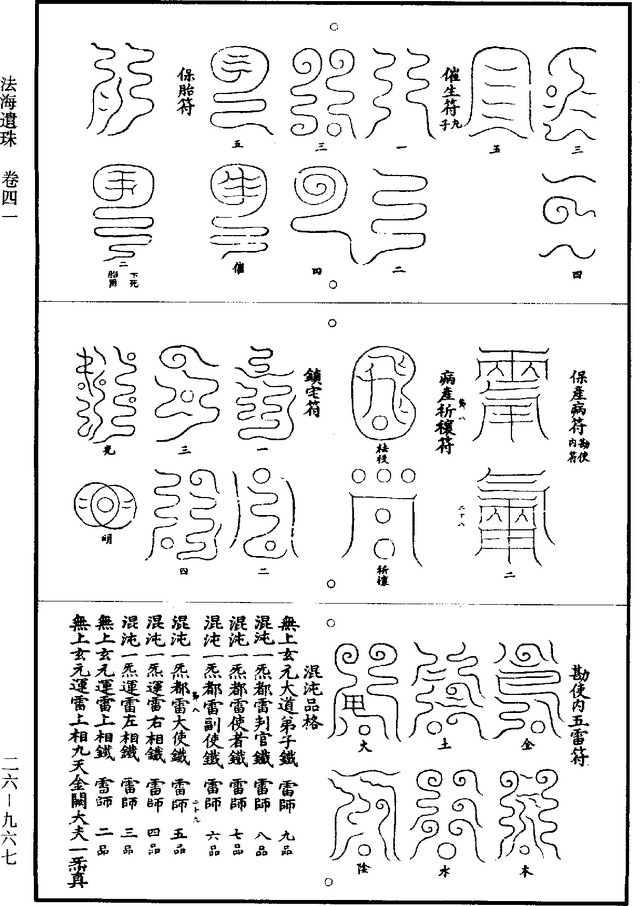 法海遺珠 卷四一
二六—九六七
三
四
五
催生符 九子
一
二
三
四
五
催
保胎符
二
下死胎用
保產病符 勘使內符
二
病產祈禳符
祛役
祈禳
鎮宅符
一
二
三
四
光
明
勘使內五雷符
金
木
土
水
火
陰
混沌品格
無上玄元大道弟子鐵 雷師 九品
混沌一炁都雷判官鐵 雷師 八品
混沌一炁都雷使者鐵 雷師 七品
混沌一炁都雷副使鐵 雷師 六品
混沌一炁都雷大使鐵 雷師 五品
混沌一炁運雷右相鐵 雷師 四品
混沌一炁運雷左相鐵 雷師 三品
無上玄元運雷上相鐵 雷師 二品
無上玄元運雷上相九天金闕大夫一炁真